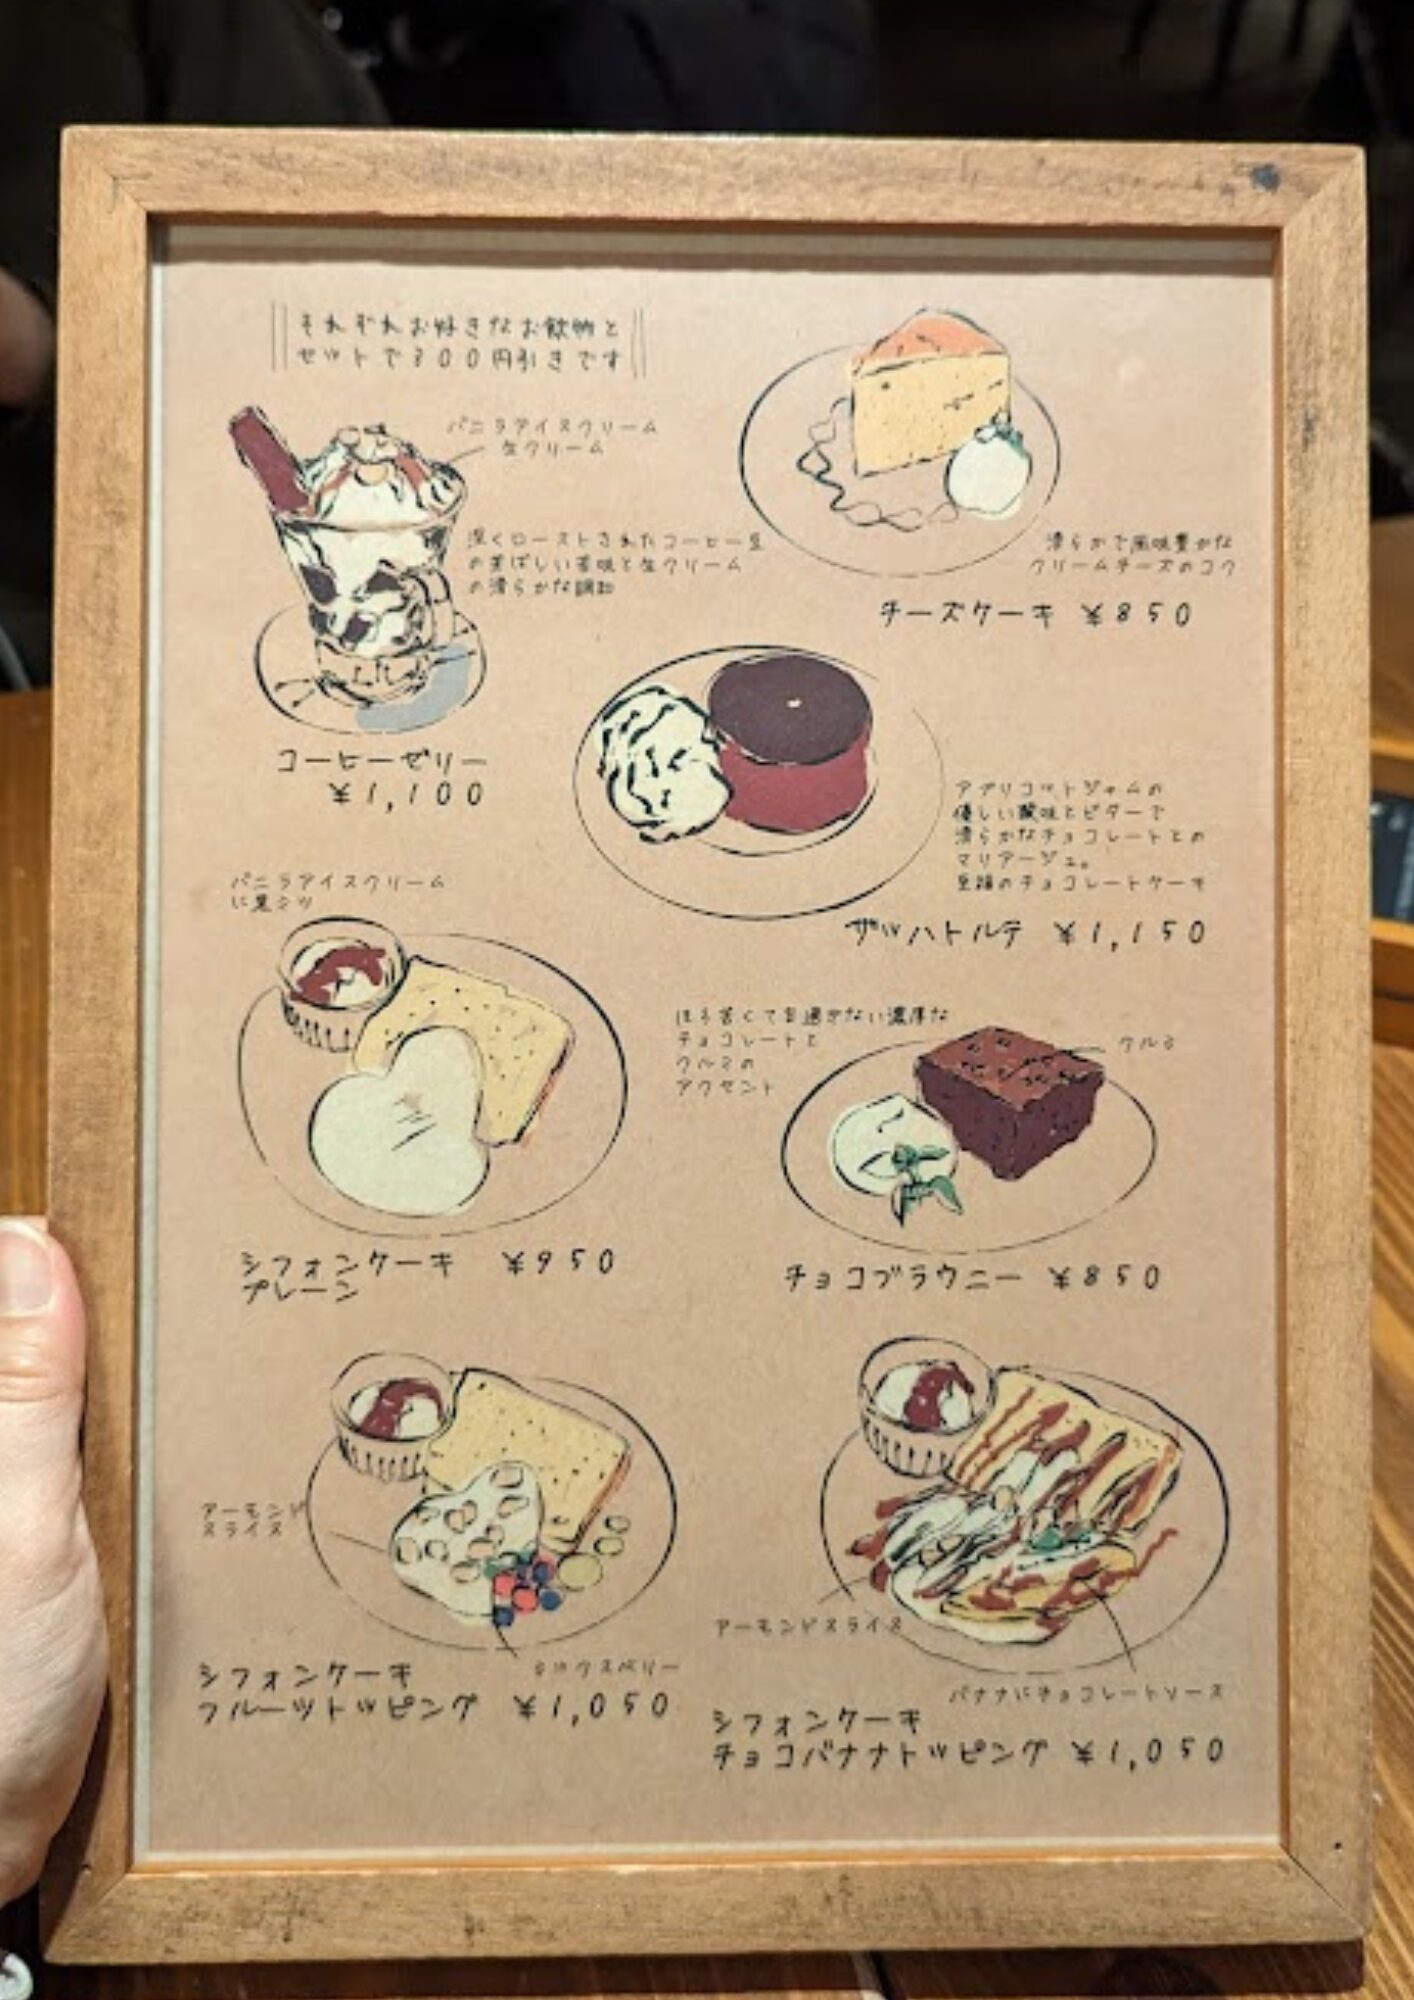 それぞれお好きなお飲物と
セットで300円引きです
バニラアイスクリーム
生クリーム
深くローストされたコーヒー豆
の芳ばしい苦味と生クリーム
の滑らかな調和
コーヒーゼリー
¥1,100
滑らかで風味豊かな
クリームチーズのコク
チーズケーキ ¥850
アプリコットジャムの
優しい酸味とビターで
滑らかなチョコレートとの
マリアージュ。
至福のチョコレートケーキ
ザッハトルテ ¥1,150
バニラアイスクリーム
に黒ミツ
シフォンケーキ ¥950
プレーン
ほろ苦くて甘過ぎない濃厚な
チョコレートと
クルミの
アクセント
クルミ
チョコブラウニー ¥850
アーモンド
スライス
ミックスベリー
シフォンケーキ
フルーツトッピング ¥1,050
アーモンドスライス
バナナにチョコレートソース
シフォンケーキ
チョコバナナトッピング ¥1,050